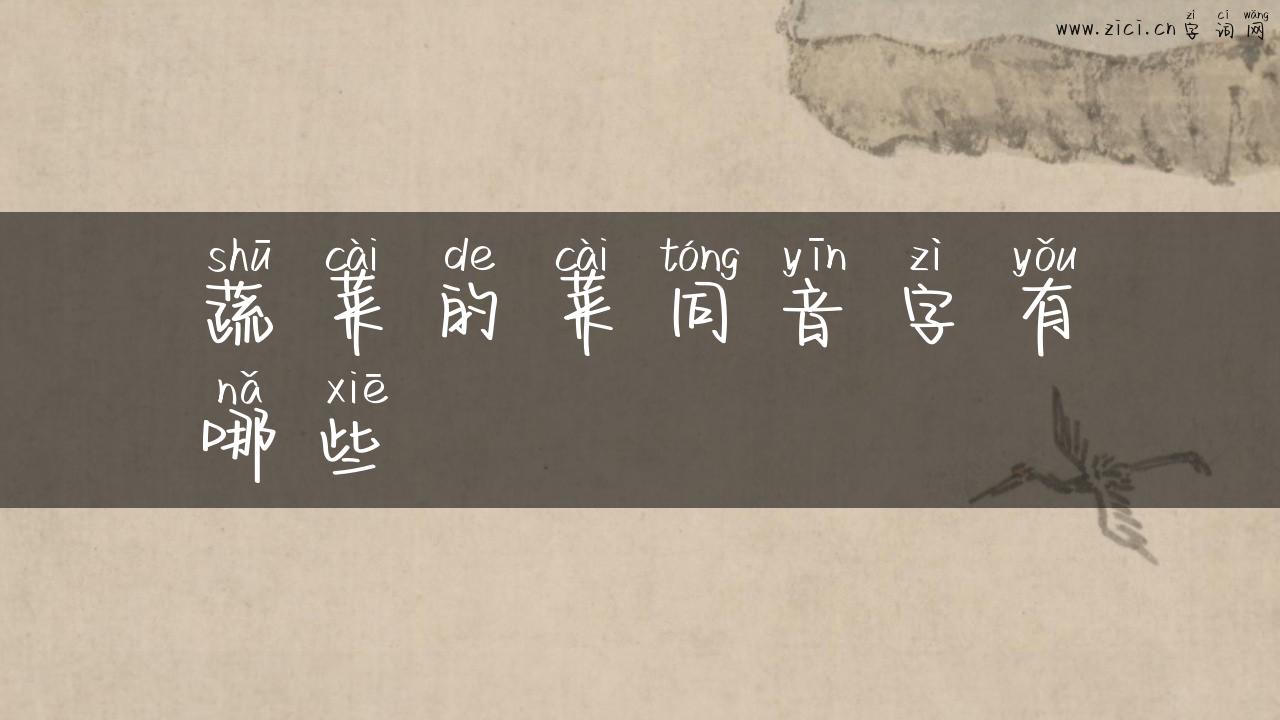 zì cí wǎng
www.zici.cn 字词网
shū cài de cài tóng yīn zì yǒu
蔬菜的菜同音字有
nǎ xiē
哪些